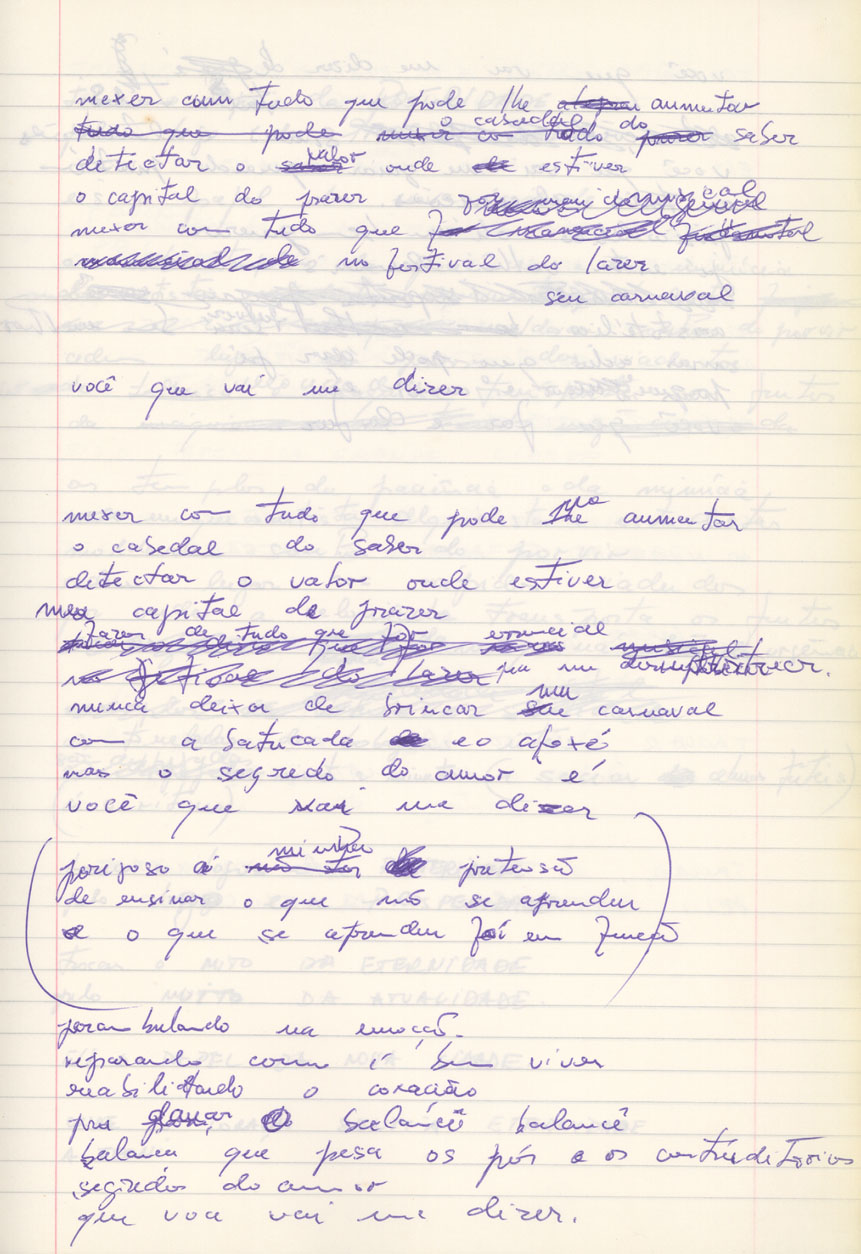 mexer com tudo que pode lhe aumentar
o casedal
tudo que pode mexer com tudo do prazer saber
detectar o valor onde estiver
o capital do prazer
mexer com tudo que
no festival do lazer
seu carnaval
você que vai me dizer
mexer com tudo que pode me aumentar
o casedal do saber
detectar o valor onde estiver
meu capital de prazer
fazer de tudo que for essencial
no festival do lazer pra me
nunca deixar de brincar meu carnaval
com a batucada e o afoxé
mas o segredo do amor é
você que vai me dizer
perigoso é minha pretensão
de ensinar o que não se aprendeu
e o que se aprendeu foi em função
perambulando na emoção.
reparando como é bom viver
reabilitando o coração
pra balancê balancê
balança que pesa os prós e os contráditórios
segredos do amor
que você vai me dizer.